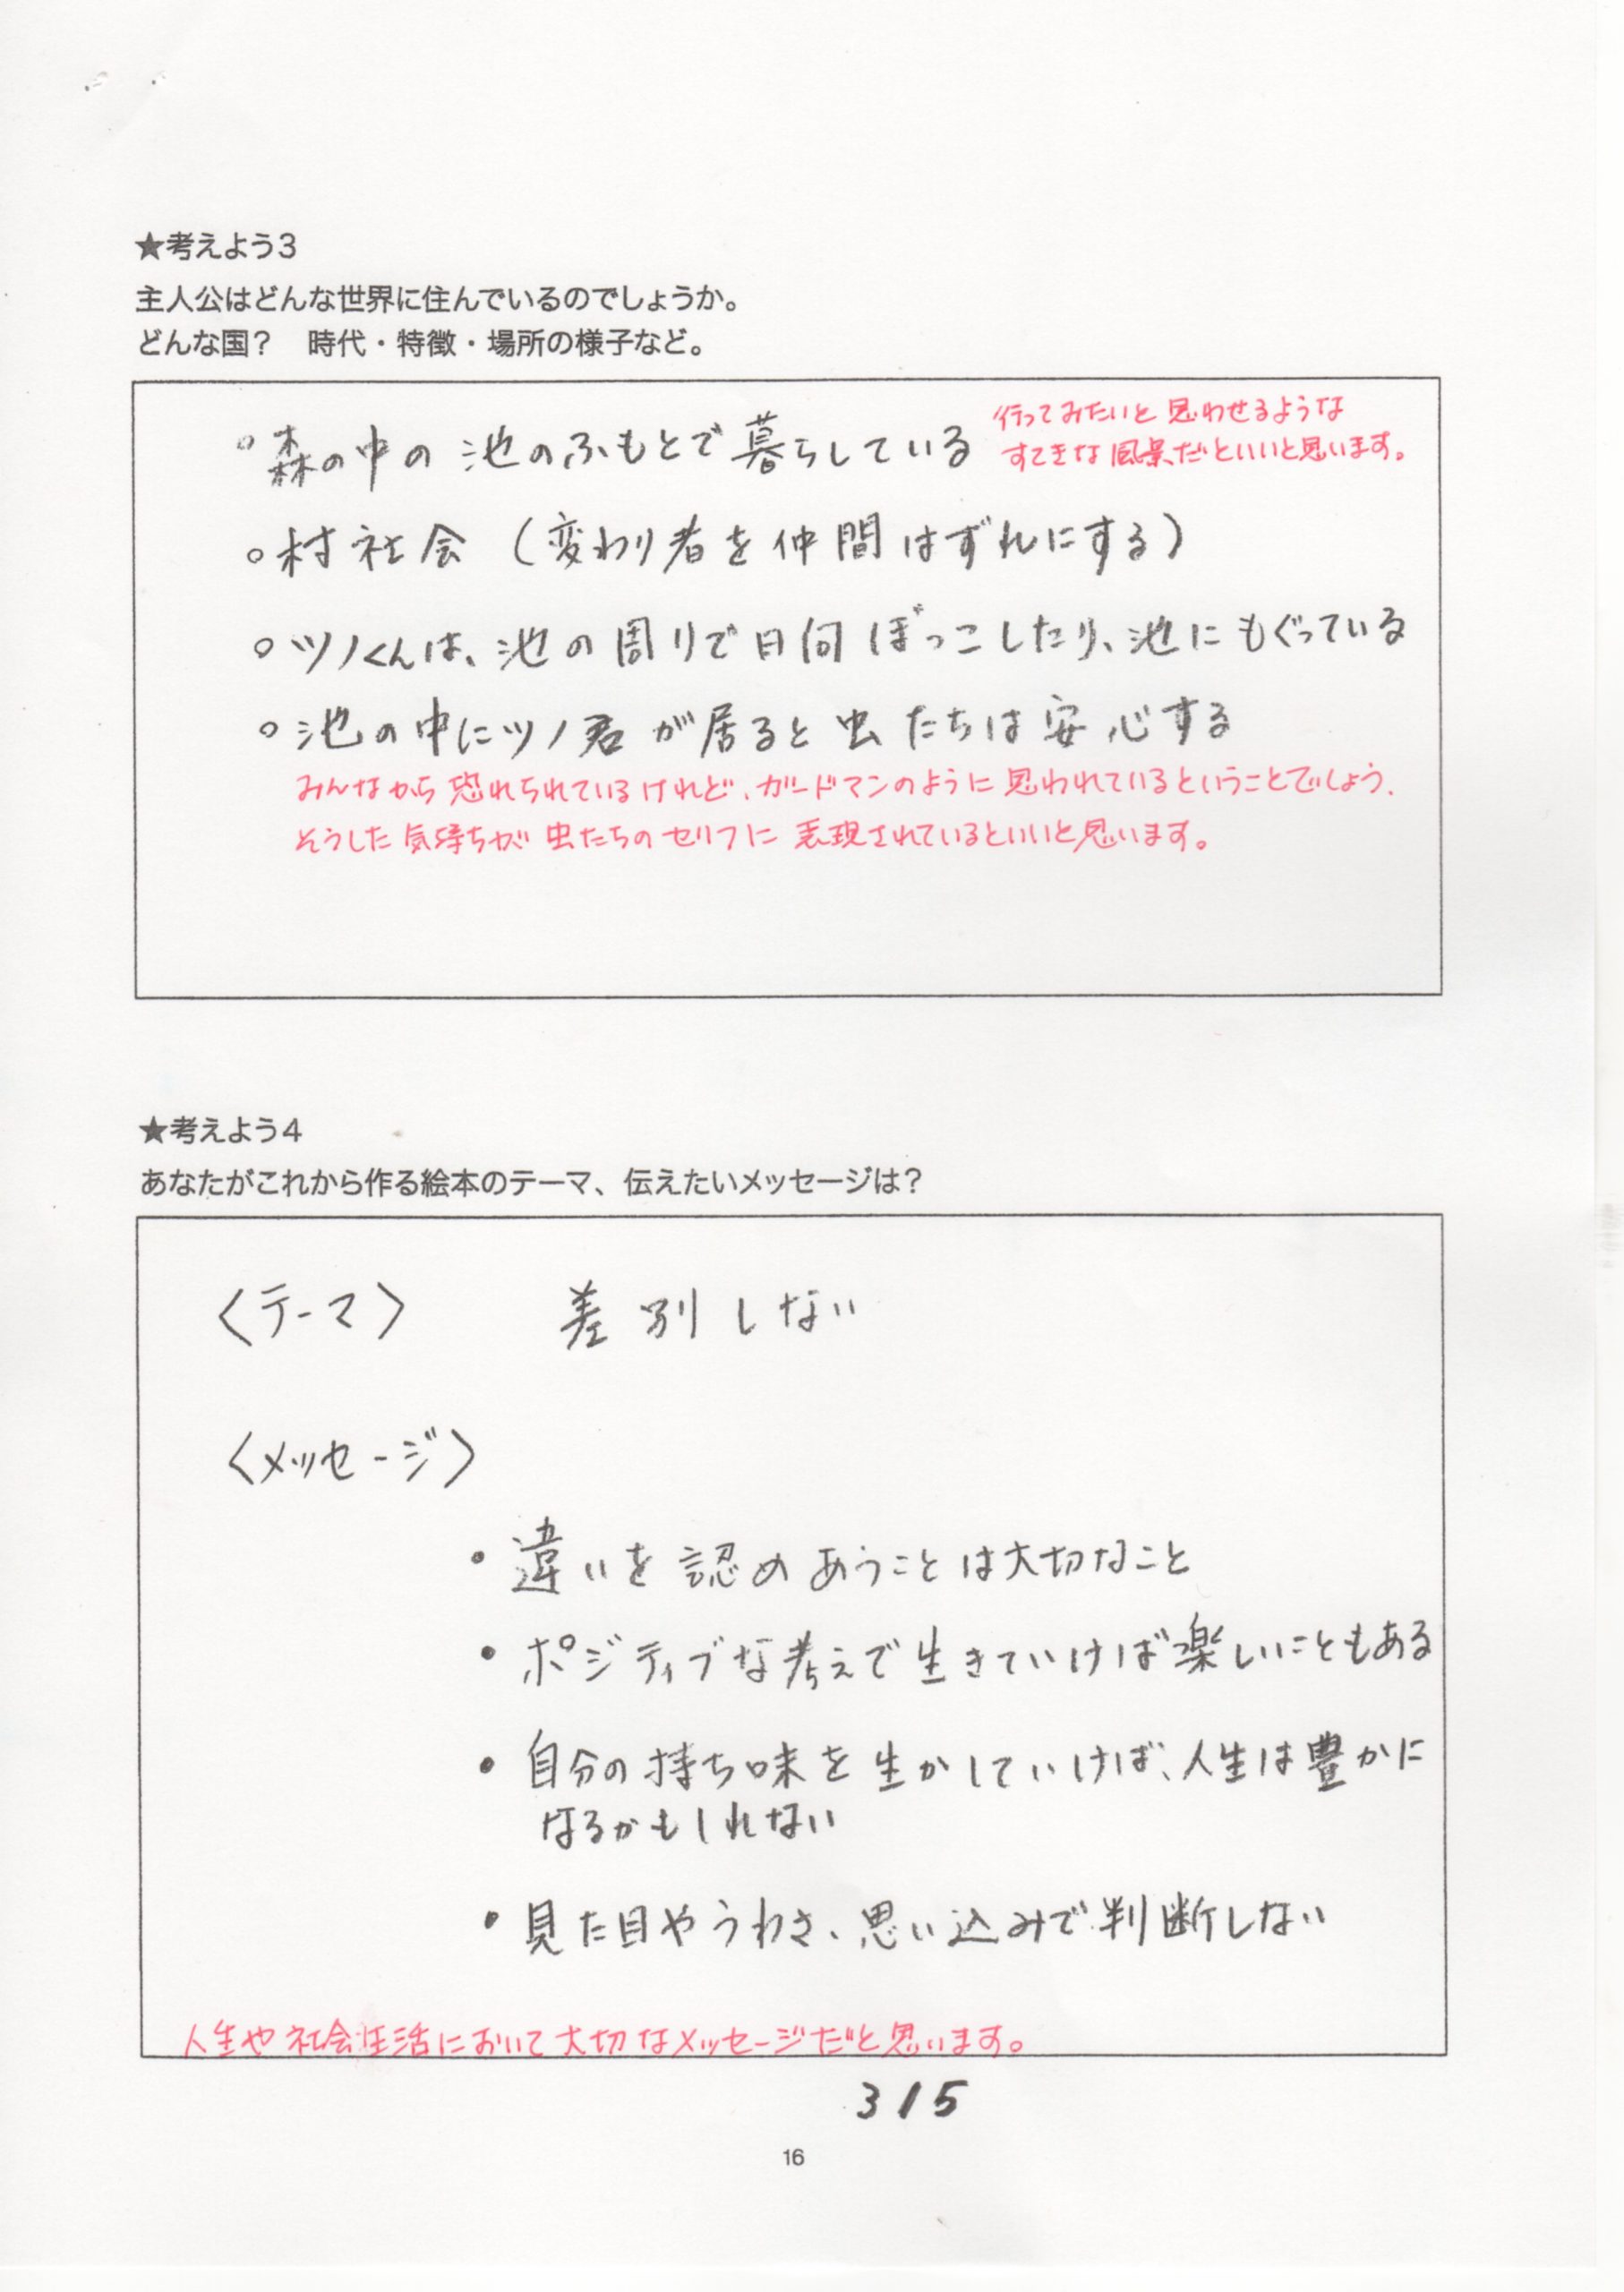 ★考えよう3
主人公はどんな世界に住んでいるのでしょうか。
どんな国？　時代・特徴・場所の様子など。
○森の中の池のふもとで暮らしている
行ってみたいと思わせるような
すてきな風景だといいと思います。
○村社会（変わり者を仲間はずれにする）
○ツノくんは、池の周りで日向ぼっこしたり、池にもぐっている
○池の中にツノ君が居ると虫たちは安心する
みんなから恐れられているけれど、ガードマンのように思われているということでしょう、
そうした気持ちが虫たちのセリフに表現されているといいと思います。
★考えよう4
あなたがこれから作る絵本のテーマ、伝えたいメッセージは？
〈テーマ〉　差別しない
〈メッセージ〉
・違いを認めあうことは大切なこと
・ポジティブな考えで生きていけば楽しいこともある
・自分の持ち味を生かしていけば、人生は豊かに
なるかもしれない
・見た目やうわさ、思い込みで判断しない
人生や社会生活において大切なメッセージだと思います。
315
16